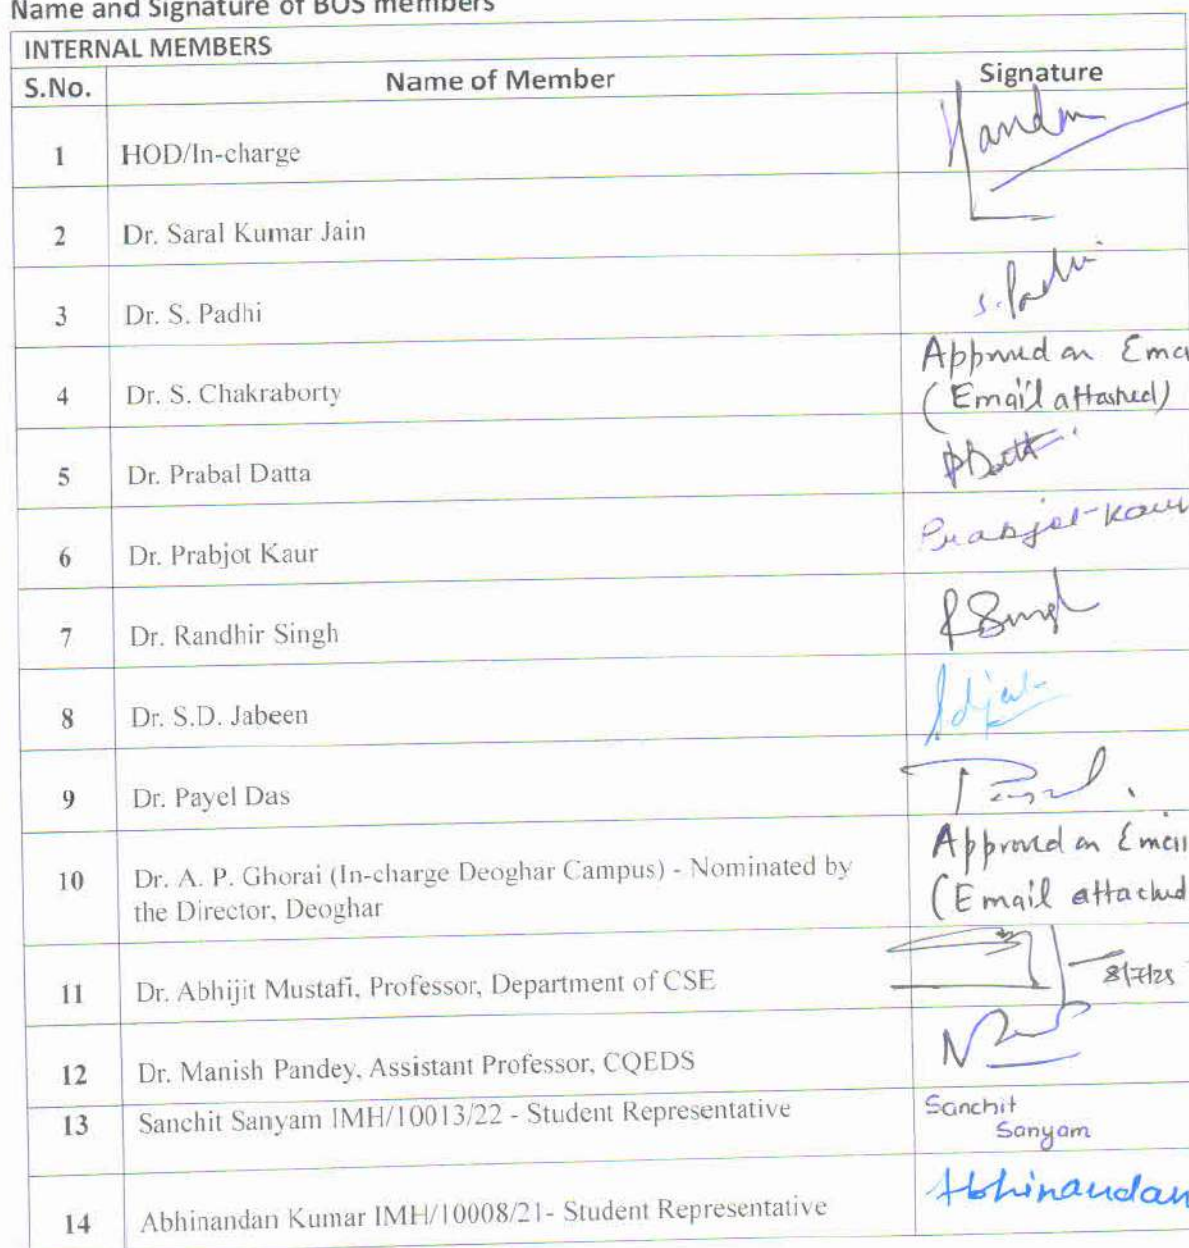 Name and Signature of BOS members
INTERNAL MEMBERS
S.No. Name of Member Signature
1 HOD/In-charge
2 Dr. Saral Kumar Jain
3 Dr. S. Padhi S. Padhi
4 Dr. S. Chakraborty Approved on Ema
(Email attached)
5 Dr. Prabal Datta PDatta
6 Dr. Prabjot Kaur Prabjot Kaur
7 Dr. Randhir Singh RSingh
8 Dr. S.D. Jabeen
9 Dr. Payel Das
10 Dr. A. P. Ghorai (In-charge Deoghar Campus) - Nominated by Approved on Email
the Director, Deoghar (Email attached
11 Dr. Abhijit Mustafi, Professor, Department of CSE 8/7/25
12 Dr. Manish Pandey, Assistant Professor, CQEDS
13 Sanchit Sanyam IMH/10013/22 - Student Representative Sanchit
Sanyam
14 Abhinandan Kumar IMH/10008/21- Student Representative Abhinandan